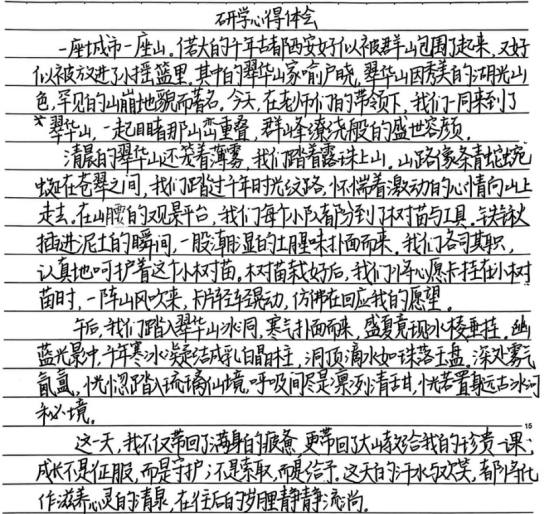 研学心得体会
一座城市一座山，偌大的千年古都西安好似被群山包围了起来，又好
似被放进了小摇篮里。其中的翠华山家喻户晓，翠华山因秀美的湖光山
色，罕见的山崩地貌而著名。今天，在老师们的带领下，我们一同来到了
翠华山，一起目睹那山峦重叠，群峰缭绕般的盛世容颜。
清晨的翠华山还笼着薄雾，我们踏着露珠上山，山路像条青蛇蜿
蜒在苍翠之间，我们踏过千年时光纹路，怀惴着激动的心情向山上
走去。在山腰的观景平台，我们每个小队都分到了树苗与工具。铁锹
插进泥土的瞬间，一股潮湿的土腥味扑面而来。我们各司其职，
认真地呵护着这个小树苗。树苗栽好后，我们将心愿卡挂在小树
苗时，一阵山风吹来，卡片轻轻晃动，仿佛在回应我的愿望。
午后，我们踏入翠华山冰洞，寒气扑面而来，盛夏竟现冰棱垂挂。幽
蓝光影中，千年寒冰凝结成乳白晶柱，洞顶滴水如珠落玉盘。深处雾气
氤氲，恍惚踏入琉璃仙境。呼吸间尽是凛冽清甜，恍若置身远古冰河
秘境。
15
这一天，我不仅带回了满身的疲惫，更带回了大山教给我的珍贵一课；
成长不是征服，而是守护；不是索取，而是给予。这天的汗水与欢笑，都将化
作滋养心灵的清泉，在往后的岁月里静静流淌。